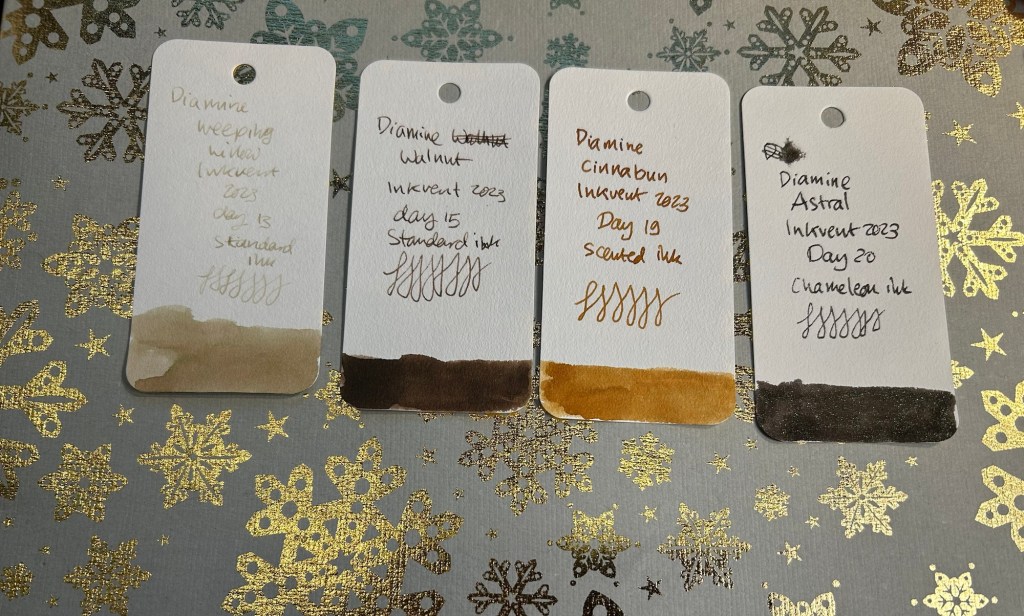 Diamine
weeping
willow
Inkvent
2023
day 13
standard
ink
Diamine
Walnut
Inkvent 2023
day 15
Standard ink
Diamine
Cinnabun
Inkvent 2023
Day 19
Scented ink
Diamine
Astral
Inkvent 2023
Day 20
Chameleon ink